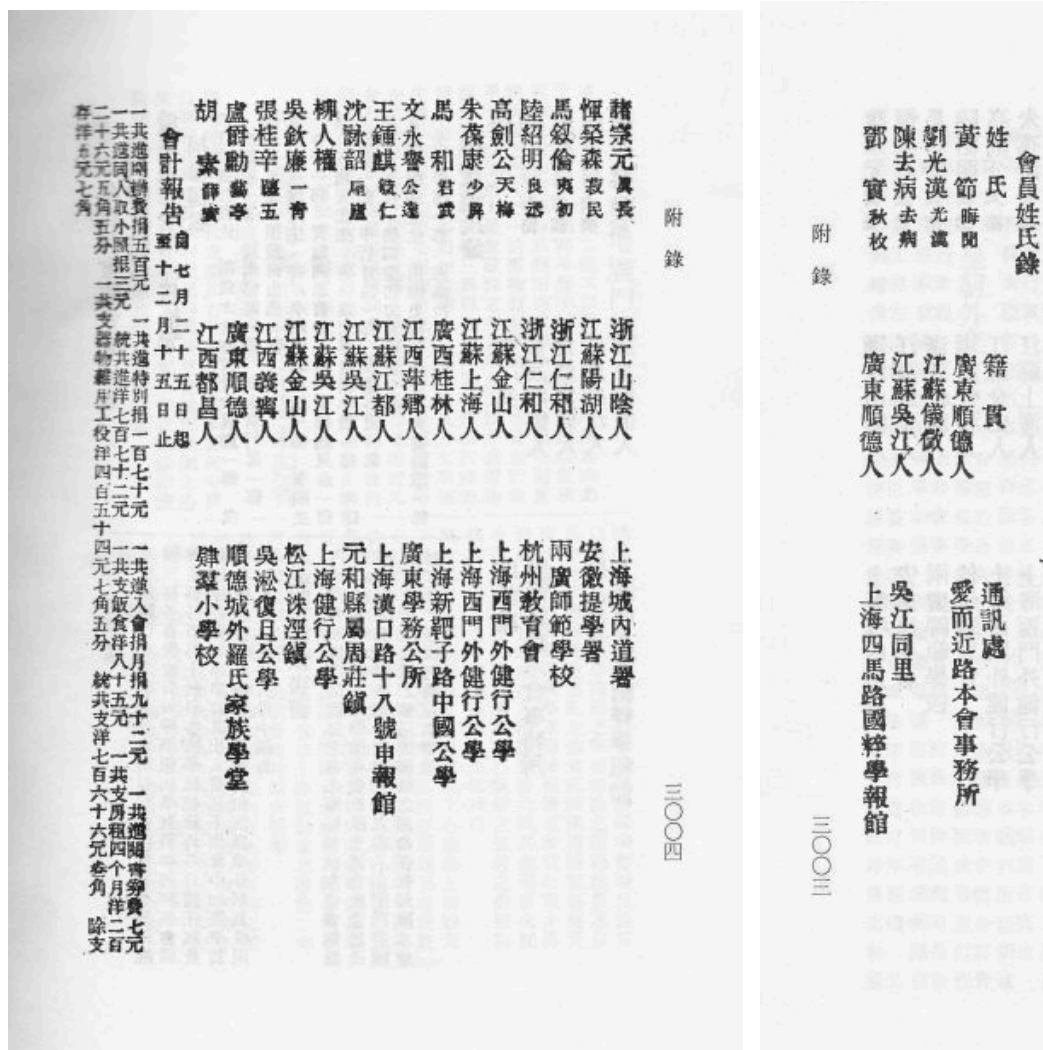 會員姓氏錄
姓氏 籍貫 通訊處
黃節 晦聞 廣東順德人 愛而近路本會事務所
劉光漢 光漢 江蘇儀徵人
陳去病 去病 江蘇吳江人 吳江同里
鄧實 秋枚 廣東順德人 上海四馬路國粹學報館
附錄
三〇〇三
附錄
三〇〇四
諸宗元 真長 浙江山陰人 上海城內道署
惲㮣森 菽民 江蘇陽湖人 安徽提學署
馬叙倫 夷初 浙江仁和人 兩廣師範學校
陸紹明 良丞 浙江仁和人 杭州敎育會
高劍公 天梅 江蘇金山人 上海西門外健行公學
朱葆康 少屏 江蘇上海人 上海西門外健行公學
馬和 君武 廣西桂林人 上海新靶子路中國公學
文永譽 公達 江西萍鄉人 廣東學務公所
王鍾麒 毓仁 江蘇江都人 上海漢口路十八號申報館
沈詠韶 江蘇吳江人 元和縣屬周莊鎮
柳人權 江蘇吳江人 上海健行公學
吳欽廉 一青 江蘇金山人 松江洙涇鎮
張桂辛 江西義寧人 吳淞復旦公學
盧爵勳 藝亭 廣東順德人 順德城外羅氏家族學堂
胡 薛賓 江西都昌人 肄羣小學校
會計報告 自七月二十五日起至十二月十五日止
一共進開辦費捐五百元 一共進特別捐一百七十元 一共進入會捐月捐九十二元 一共進閱書劵費七元
一共進同人取小照捐三元 統共進洋七百七十二元 一共支飯食洋八十五元 一共支房租四个月洋二百
二十六元五角五分 一共支器物雜用工役洋四百五十四元七角五分 統共支洋七百六十六元叁角 除支
存洋五元七角